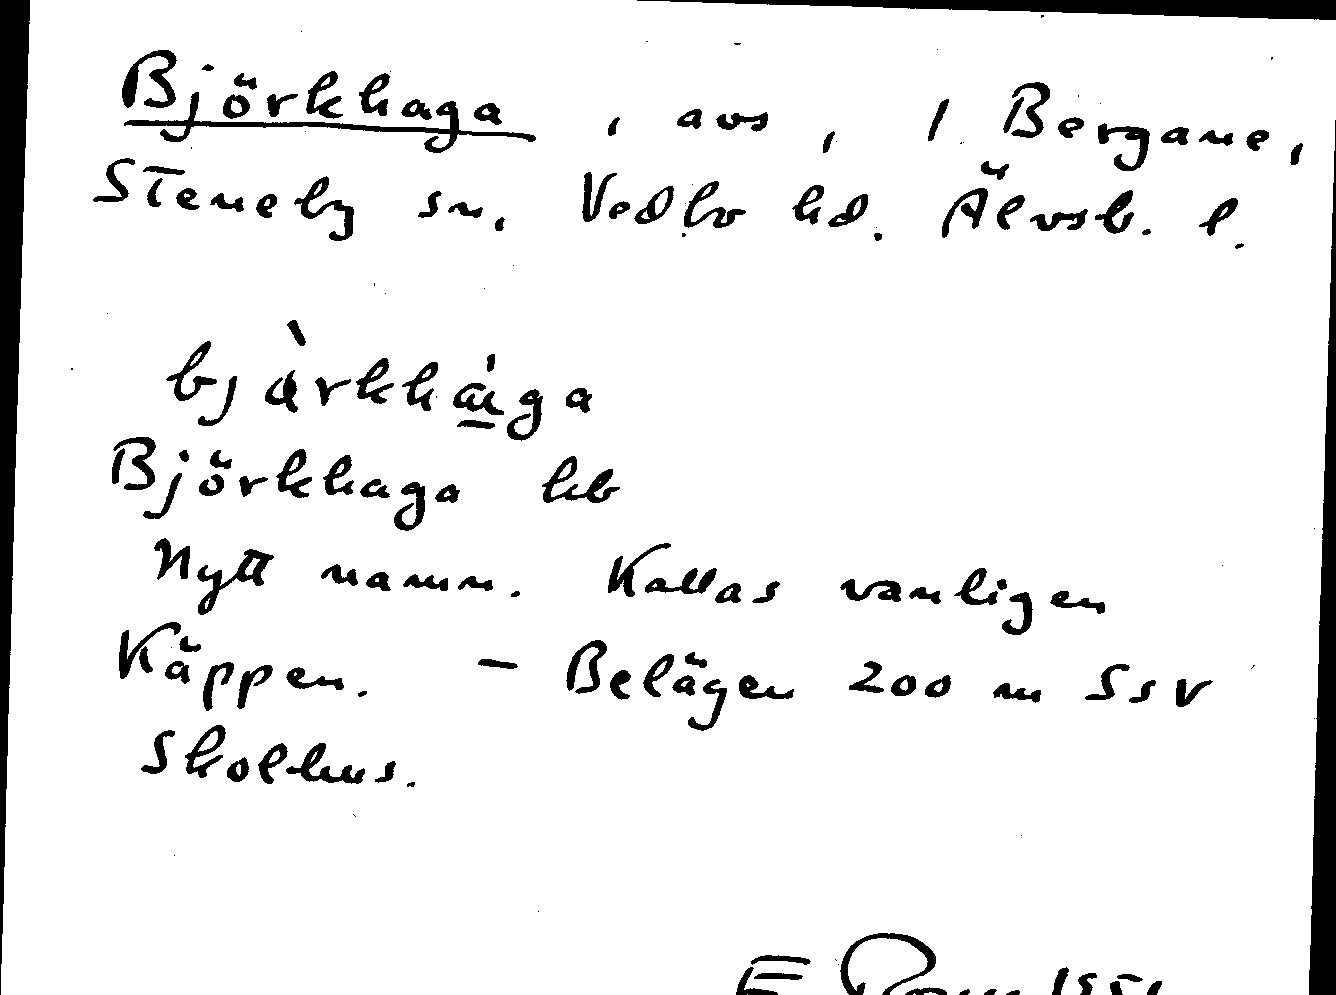 Björkhaga, avs, / Bergane,
Steneby sn, Vedbo hd. Älvsb. l.
Björkhaga kb
Nytt namn. Kallas vanligen
Käppen. — Belägen 200 m SSV
Skolhus.
E